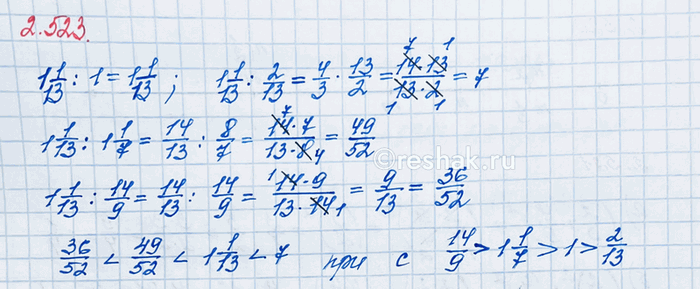 2.523.
1 1/13 : 1 = 1 1/13 ; 1 1/13 : 2/13 = 4/3 · 13/2 = 14·13/13·2 = 7
7 1
1 1
1 1/13 : 1 1/7 = 14/13 : 8/7 = 14·7/13·8 = 49/52
7
4
1 1/13 : 14/9 = 14/13 : 14/9 = 14·9/13·14 = 9/13 = 36/52
1
1
36/52 < 49/52 < 1 1/13 < 7 при с 14/9 > 1 1/7 > 1 > 2/13
©reshak.ru